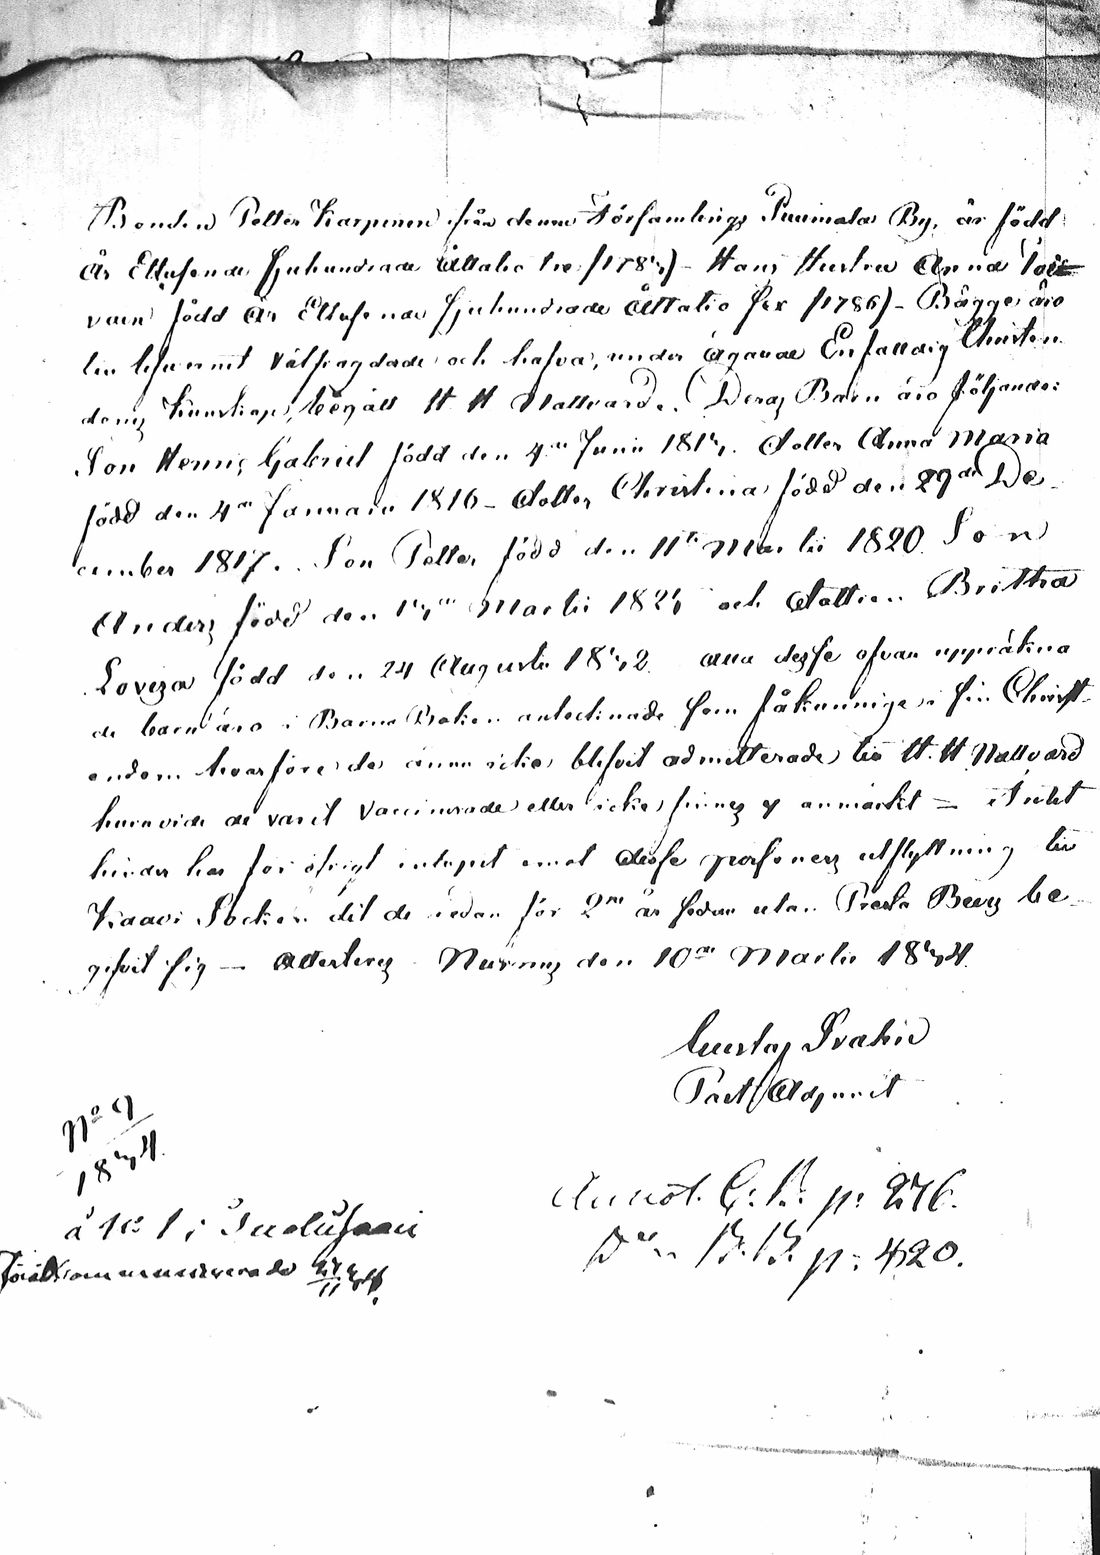 Bonden Petter Karpinen från denne Församlings Puumala By, är född
År Ettusende Sjuhundrade Åttatio tre (1783) - Hans Hustru Anna Toi=
vain född År Ettusende Sjuhundrade Åttatio sex (1786) - Bägge äro
välfrägdade och hafva, under ägande Enfaldig Christen
doms Kunskap, begått H. H. Nattvard. Deras Barn äro följande:
Son Henric Gabriel född den 4de Junii 1813. Dotter Anna Maria
född den 4de Januarii 1816 - Dotter Christina född den 29de De-
cember 1817. Son Petter född den 11te Martii 1820. Son
Anders född den Martii 1823 och Dottren Britha
Lovisa född den 24 Augusti 1832 alla desse ofvan uppräkna
de barn äro i Barna Boken antecknade som fåkunnige i sin Christ-
endom hvarföre de ännu icke blifvit admitterade till H. H. Nattvard
huruvida de varit Vaccinerade eller icke finnes ej anmärkt - Intet
hinder har för öfrigt inlupit emot desse personers utflyttning till
Kaavi Socken dit de redan för 2ne år sedan utan Presta Bevis be-
gifvit sig - Attesteras Nurmis den 10de Martii 1834.
Gustaf
Past. Adjunct
No 9
1834.
å No 1 i
Annot. C. B. p. 276.
D:o B. B. p. 420.